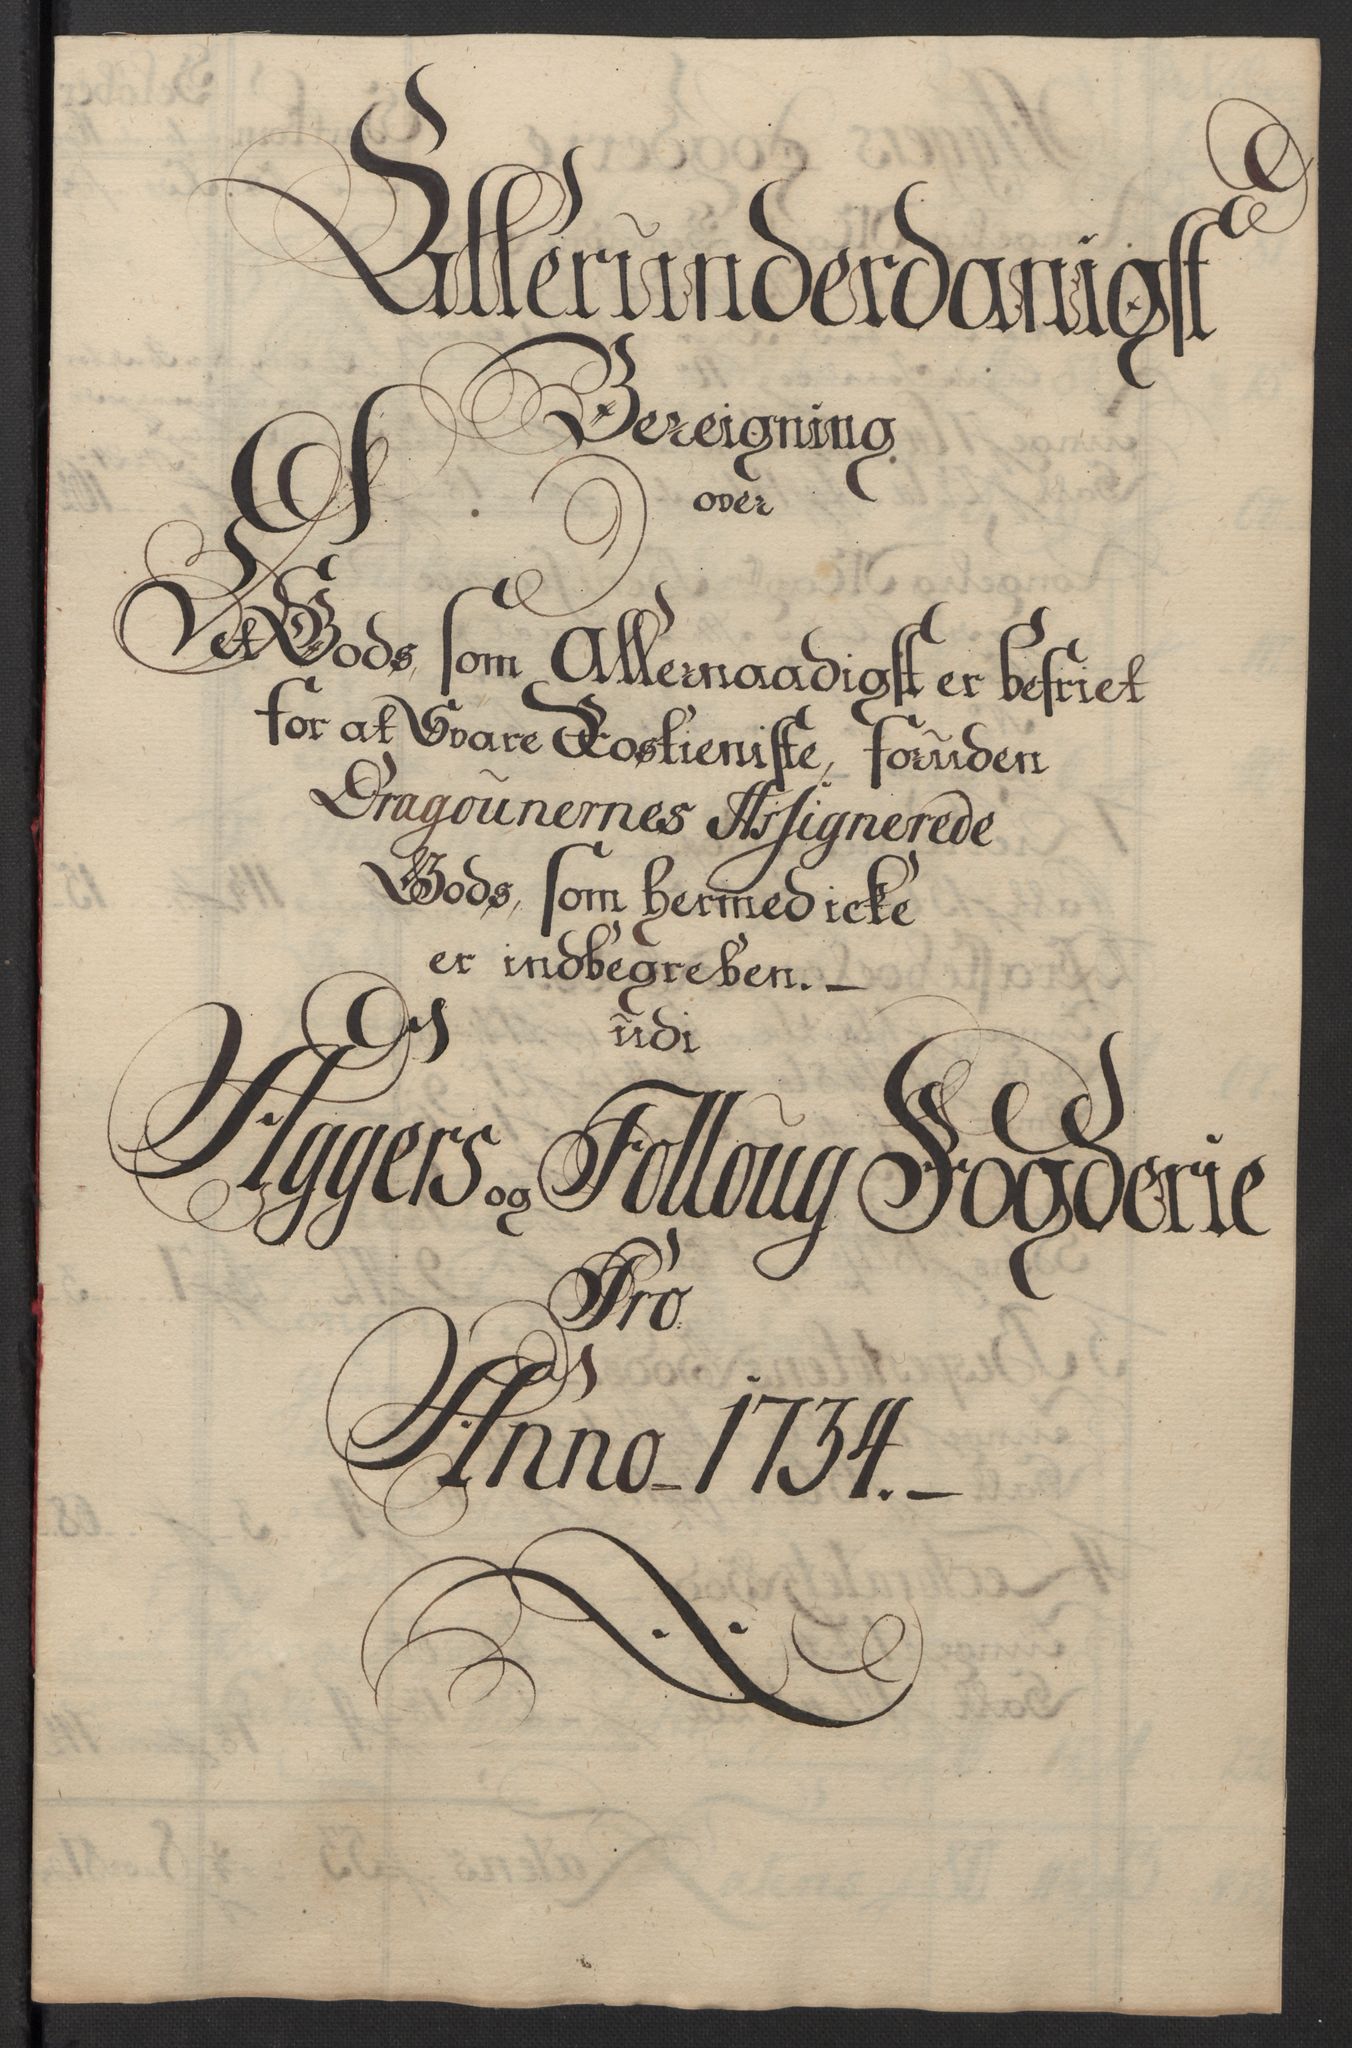 Alleründerdanigst
Bereigning
over
Det Gods, som Allernaadigst er befriet
for at Svare Rostieniste, forüden
Dragoünernes Assignerede
Gods, som hermed icke
er indbegreben. –
üdi
Aggers og Folloüg Fogderie
Pro
Anno – 1734. –